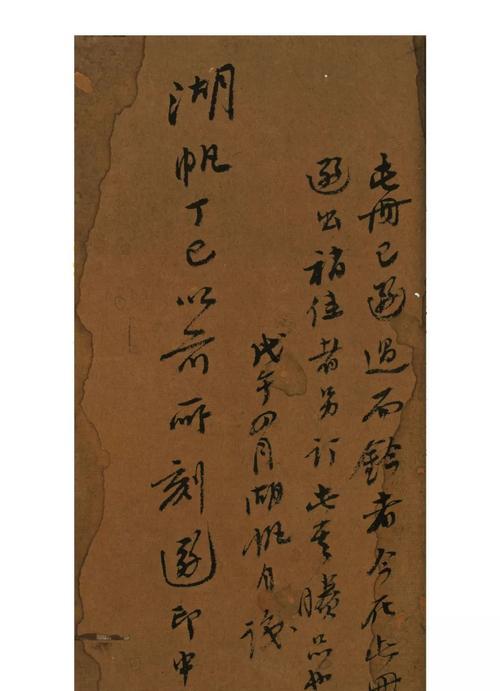 此冊已選過而鈐者今在此冊
選出稍佳者另訂此其賸品也
戊午四月湖帆自識
湖帆丁巳以前所刻選印中